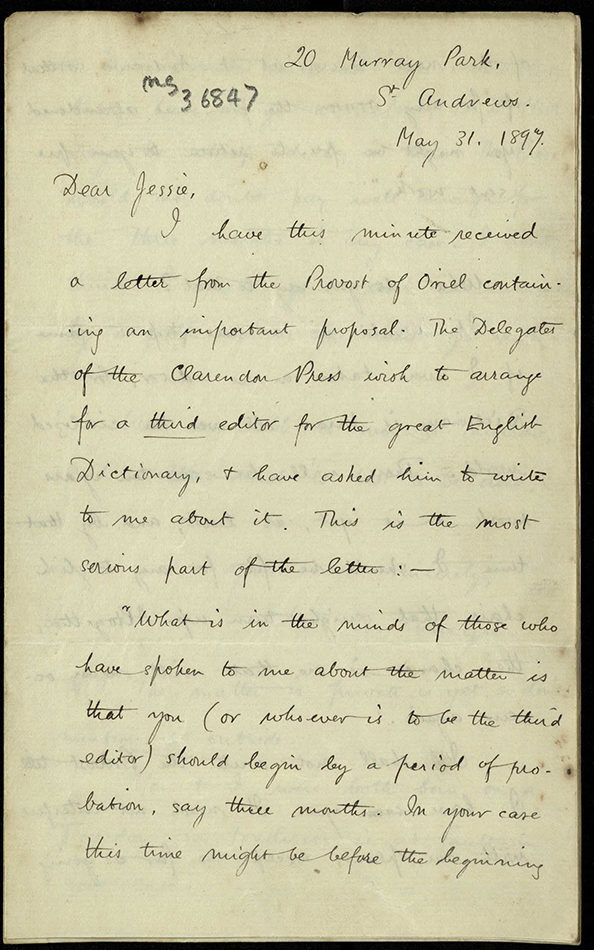 20 Murray Park,
ms 36847
St Andrews.
May 31. 1897.
Dear Jessie,
I have this minute received
a letter from the Provost of Oriel contain-
-ing an important proposal. The Delegates
of the Clarendon Press wish to arrange
for a third editor for the great English
Dictionary, & have asked him to write
to me about it. This is the most
serious part of the letter: —
"What is in the minds of those who
have spoken to me about the matter is
that you (or whoever is to be the third
editor) should begin by a period of pro-
bation, say three months. In your case
this time might be before the beginning